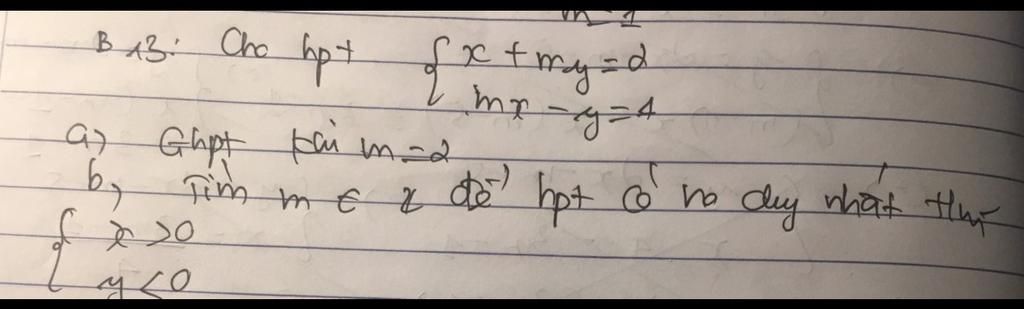 m = 1
B13: Cho hpt { x + my = 2
mx - y = 4
a) Ghpt khi m = 2
b, Tìm m ∈ Z để hpt có no duy nhất thỏa
{ x > 0
y < 0